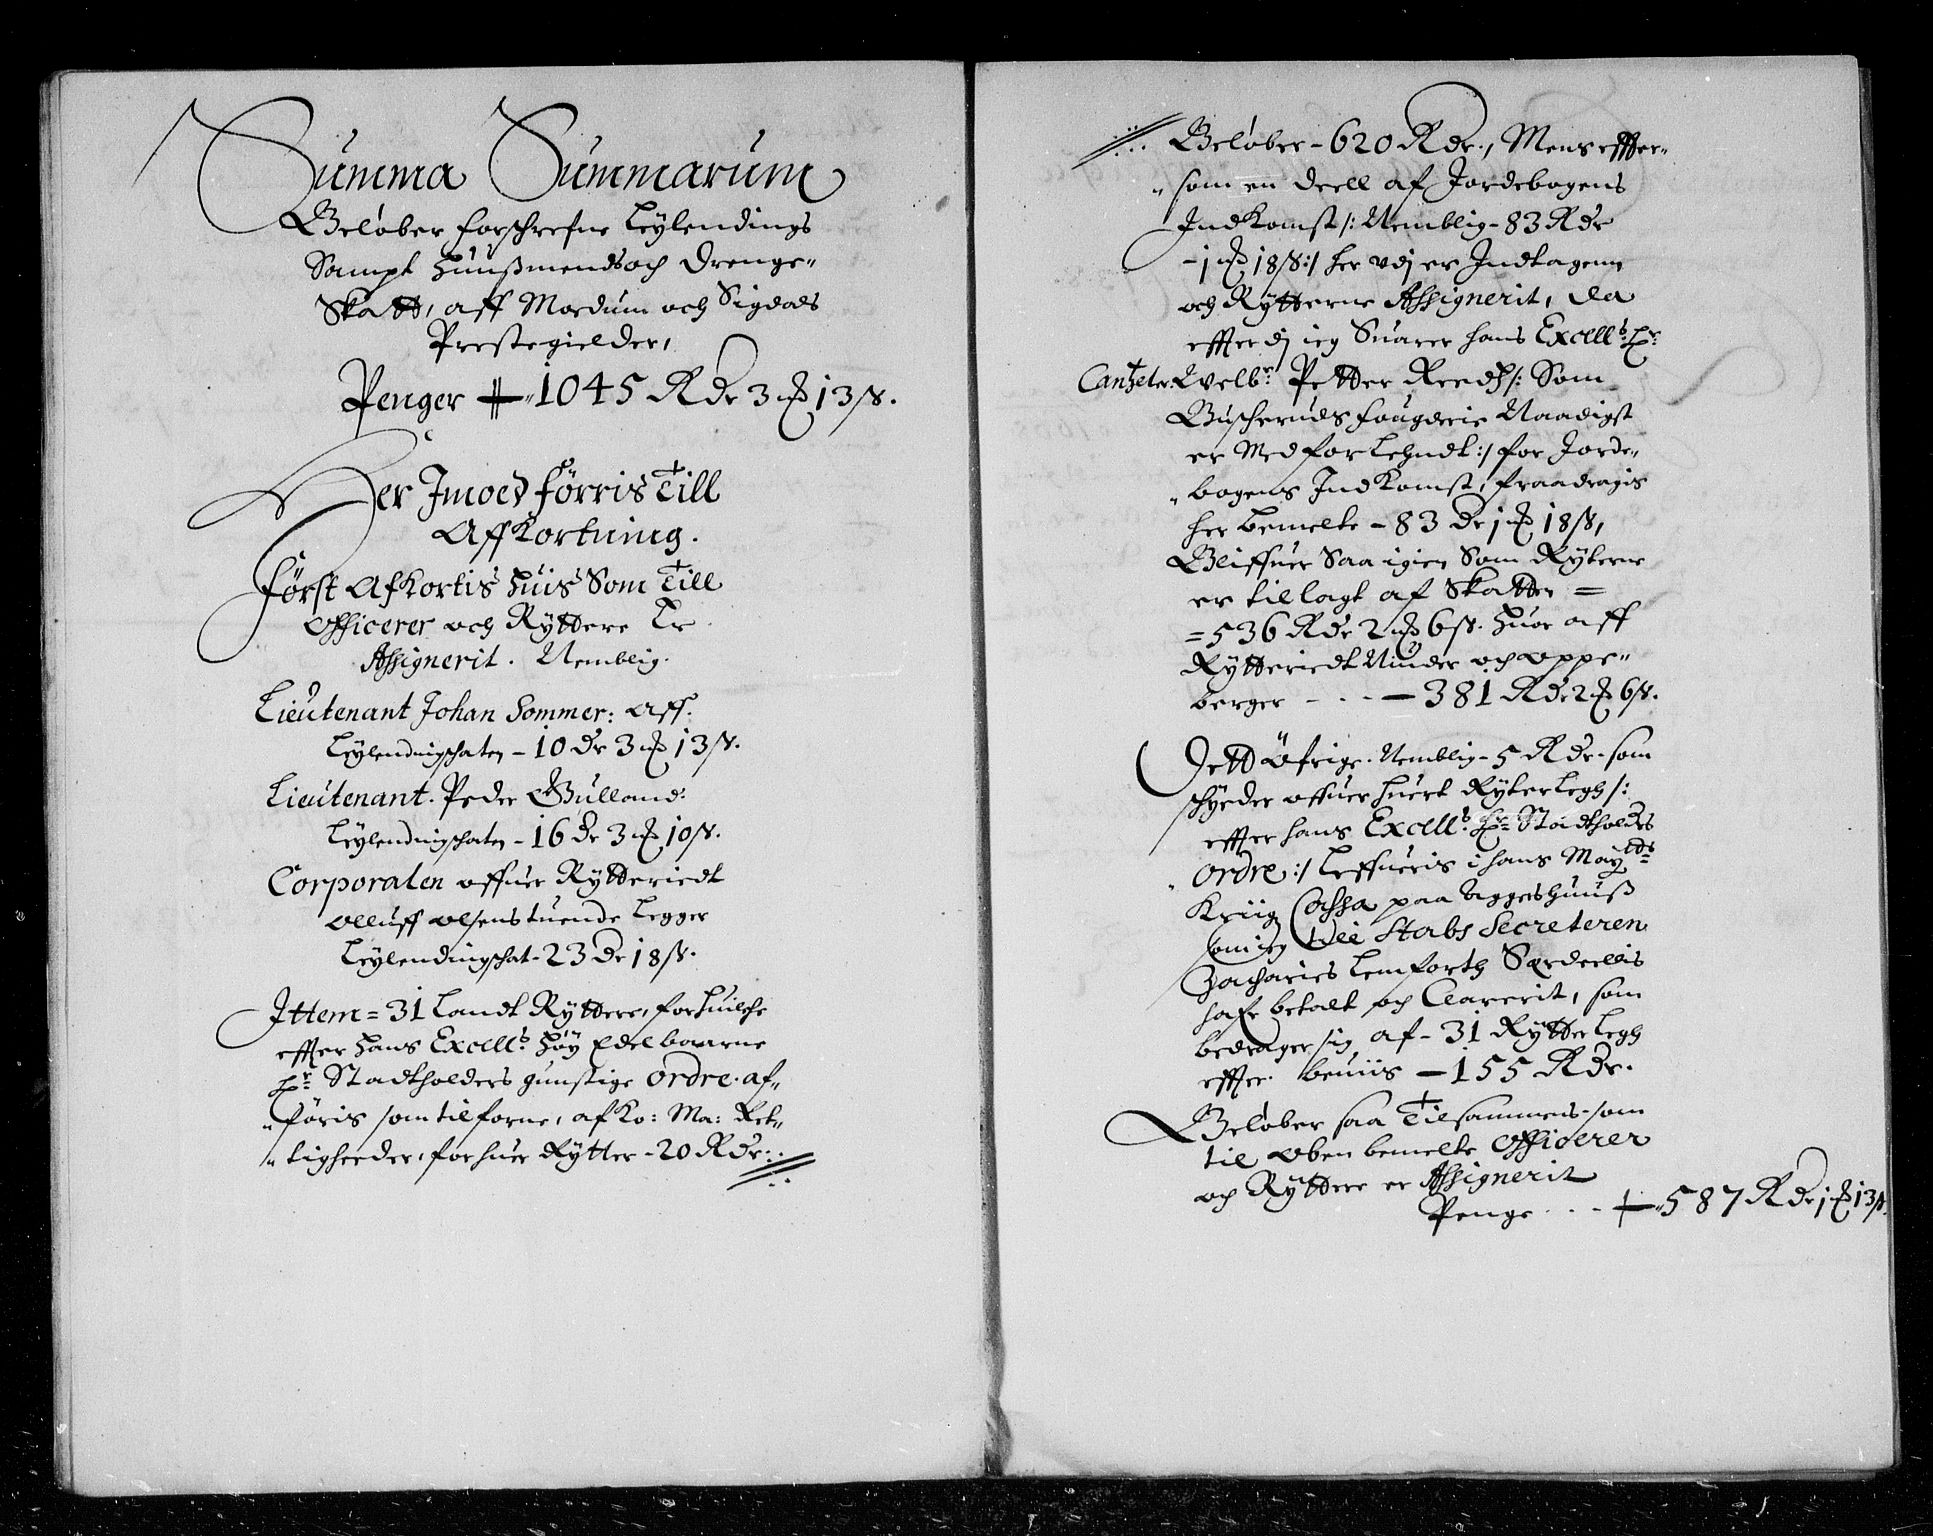 Summa Summarum
Beløber forschrefne Leylendings
Sampt Huußmends och Drenge-
Skatt, aff Modum och Sigdals
Prestegielder,
Penger 1045 Rdr 3 ß 13 ß.
Her Imoed førris Till
Aff Kortning.
Først AfKortis Huis Som Till
Officerer och Ryttere Er
Assignerit. Nemblig.
Lieutenant Johan Sommer: aff:
Leylendingschaten - 10 dr 3 ß 13 ß.
Lieutenant. Peder Gulland:
Leylendingschaten - 16 dr 3 ß 10 ß.
Corporalen offuer Rytteriedt
Olluff Olsens tuende Legger
Leylendingschat - 23 Dr 18 ß.
Ittem = 31 Landt Ryttere, for huilche
effter Hans Excell: Høy Edelbaarne
Hr Stadtholders gunstige Ordre. af-
føris som tilforne, af Ko: Ma: Ret-
tigheeder, for huer Rytter - 20 Rdr:
Beløber - 620 Rdr., Mens effter-
som en deell af Jordebogens
IndKomst /: Nemblig - 83 Rdr
- 1 ß 18 ß :/ her vdj er Indtagenn
och Rytterne Assignerit, da
effterdj ieg Suarer hans Excell: Hr
Cantzeler Welbr Petter Reedtz /: Som
Buscheruds fougderie Naadigst
er Med forlehndt :/ for Jorde-
bogens IndKomst, fraadragis
her bemelte - 83 dr 1 ß 18 ß,
Bliffuer Saa igien Som Ryterne
er tillagt af Skatten =
= 536 Rdr 2 ß 6 ß. Huor aff
Rytteriedt Niuder och oppe-
berger - - - 381 Rdr 2 ß 6 ß.
Dett Øfrige. Nemblig - 5 Rdr. som
schyeder offuer huert Ryterlegh /:
effter hans Excell: Hr Stadtholders
Ordre :/ Leffueris i hans Mayts
Kriig Cassa paa Aggershuuß
som ieg til Stabs Secreteren
Zacharies Lemforth Særdeelis
hafr betalt och Clarerit, som
bedrager sig af - 31 Rytter legh
effter beuiis - 155 Rdr.
Beløber saa Tilsammens - som
til Oben bemelte Officerer
och Ryttere er Assignerit
Penge . . . 587 Rdr 1 ß 13 ß.